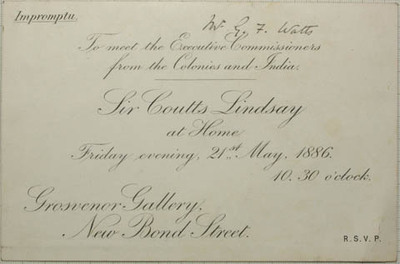 Impromptu.
Mr G. F. Watts
To meet the Executive Commissioners
from the Colonies and India.
Sir Coutts Lindsay
at Home
Friday evening, 21st May, 1886.
10.30 o'clock.
Grosvenor Gallery,
New Bond Street.
R.S.V.P.